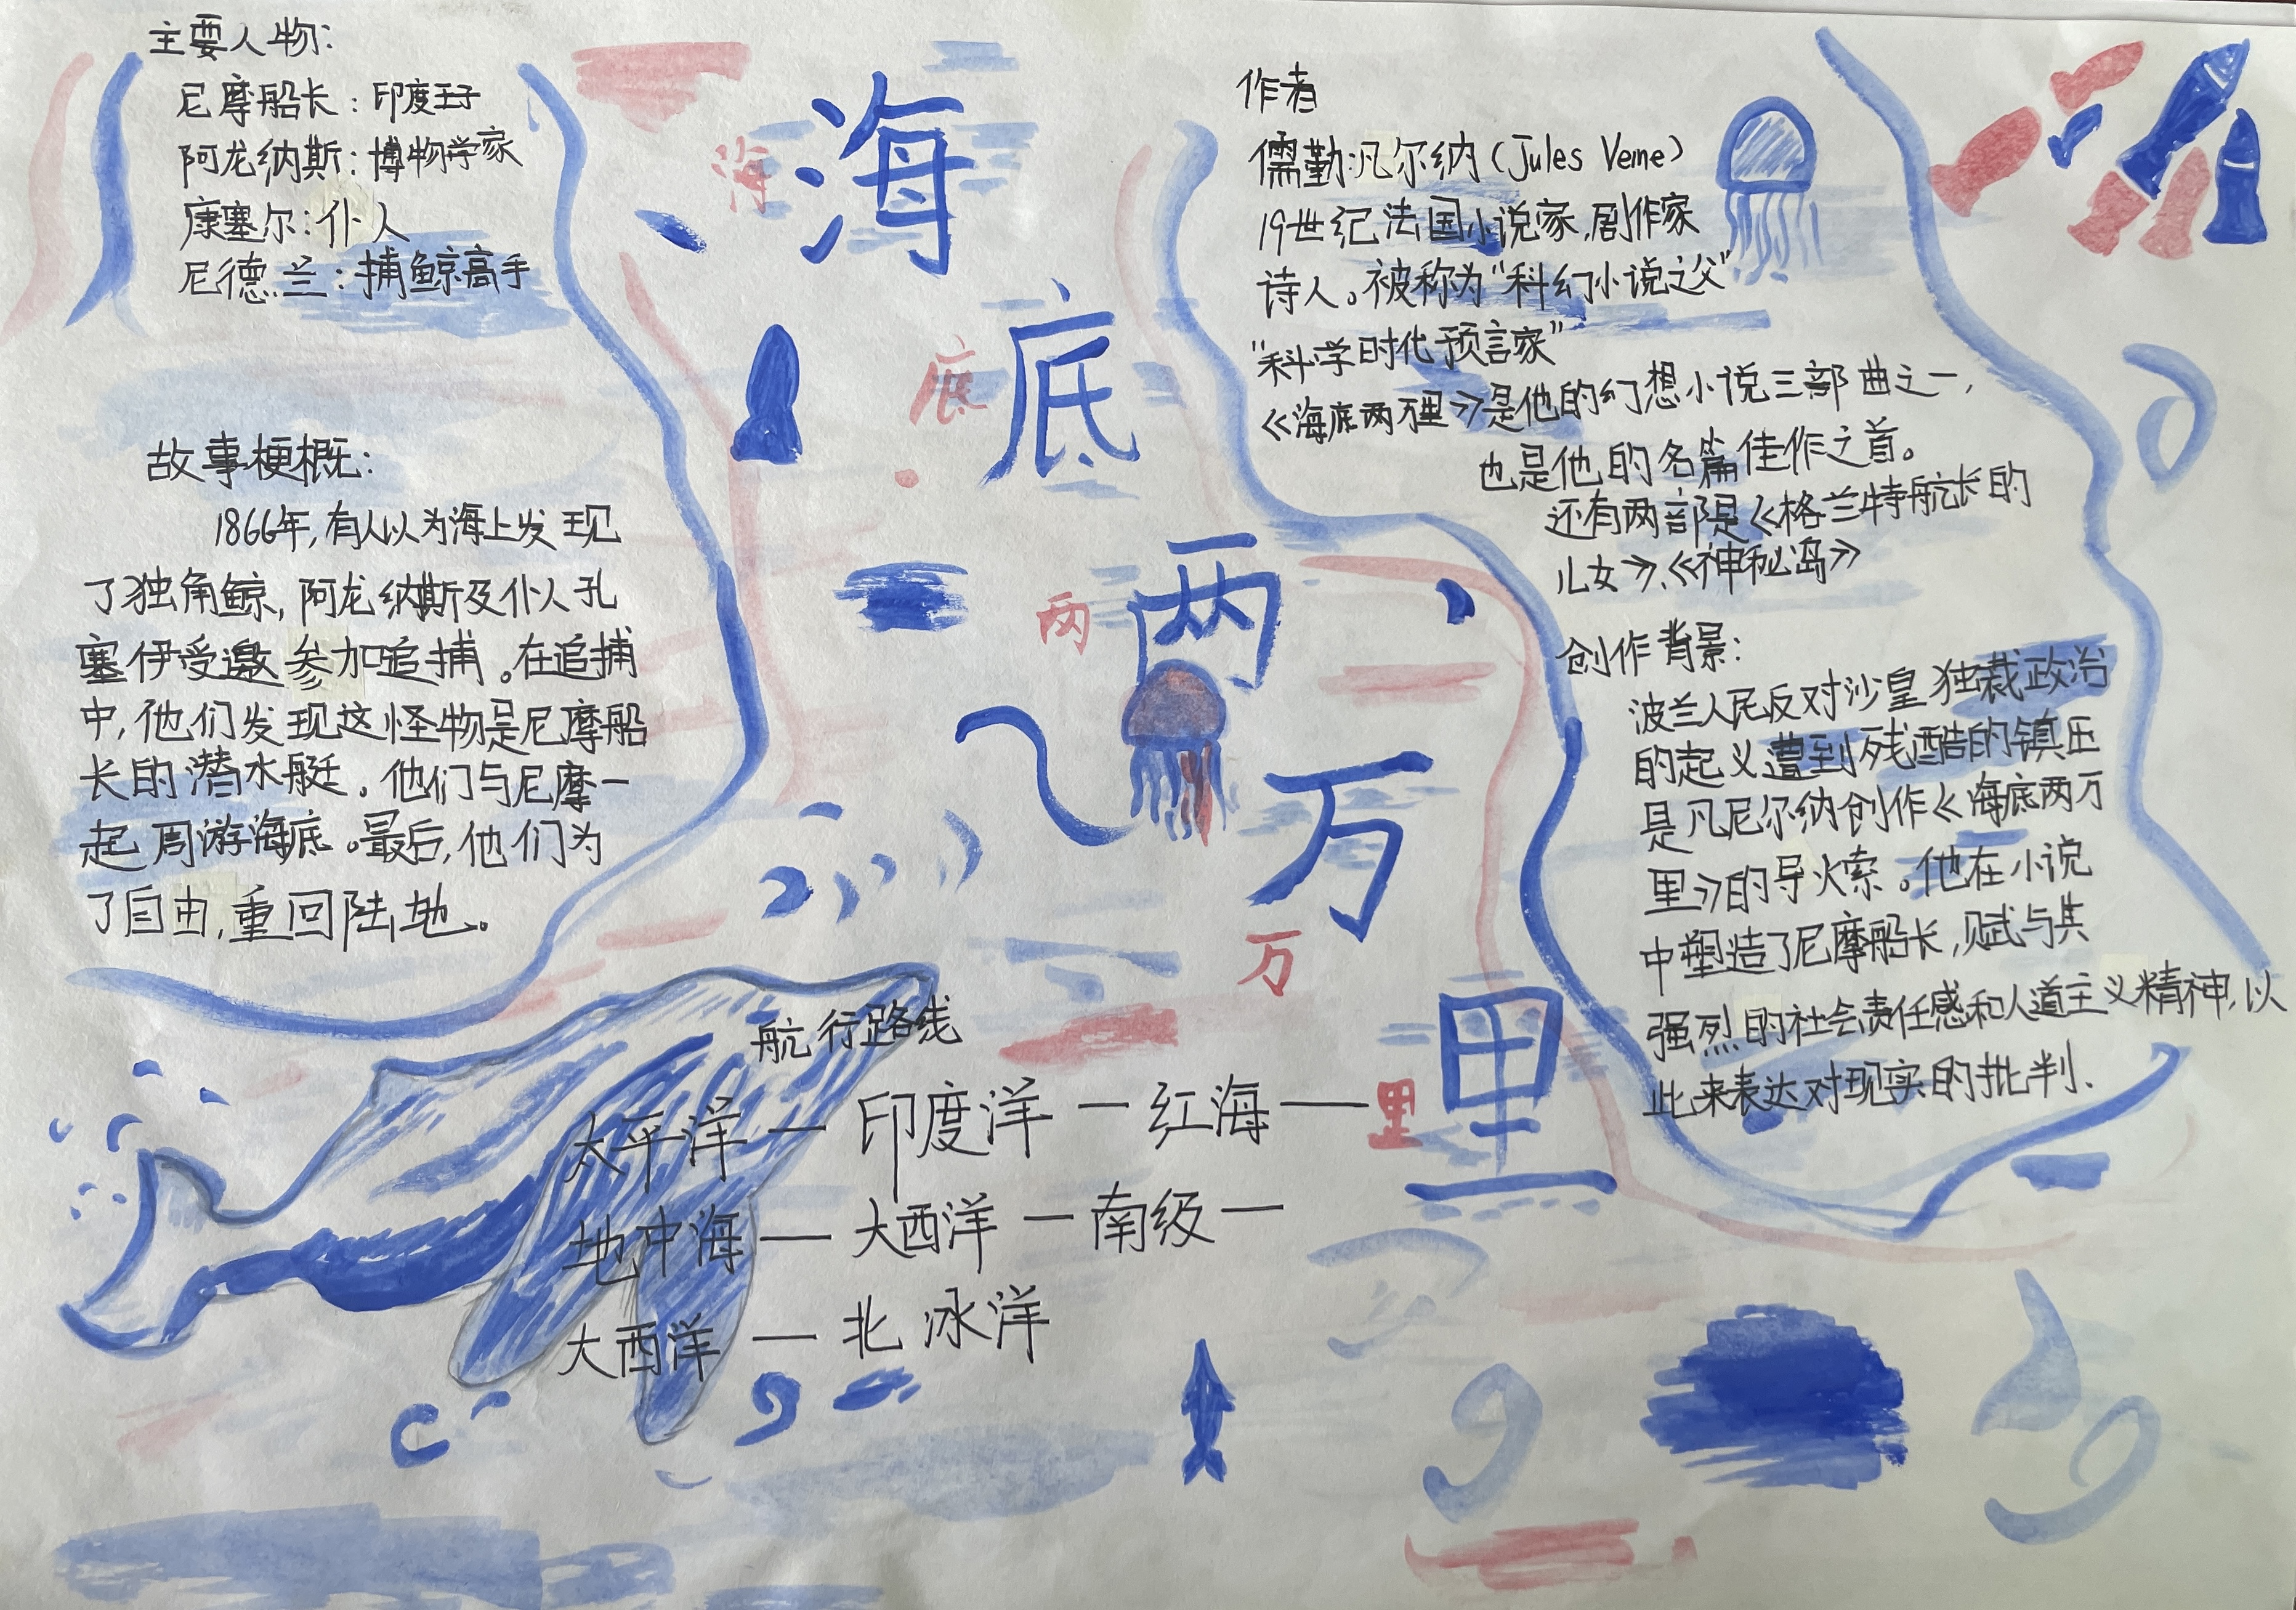 主要人物:
尼摩船长:印度王子
阿龙纳斯:博物学家
康塞尔:仆人
尼德.兰:捕鲸高手
故事梗概:
1866年,有人以为海上发现
了独角鲸,阿龙纳斯及仆人孔
塞伊受邀参加追捕。在追捕
中,他们发现这怪物是尼摩船
长的潜水艇。他们与尼摩一
起周游海底。最后,他们为
了自由,重回陆地。
海
海
底
底
两
两
万
万
里
里
作者
儒勒·凡尔纳(Jules Verne)
19世纪法国小说家,剧作家
诗人。被称为“科幻小说之父”
“科学时代预言家”
《海底两万里》是他的幻想小说三部曲之一,
也是他的名篇佳作之首。
还有两部是《格兰特航长的
儿女》、《神秘岛》
创作背景:
波兰人民反对沙皇独裁政治
的起义遭到残酷的镇压
是凡尼尔纳创作《海底两万
里》的导火索。他在小说
中塑造了尼摩船长,赋与其
强烈的社会责任感和人道主义精神,以
此来表达对现实的批判.
航行路线
太平洋—印度洋—红海—
地中海—大西洋—南级—
大西洋—北冰洋